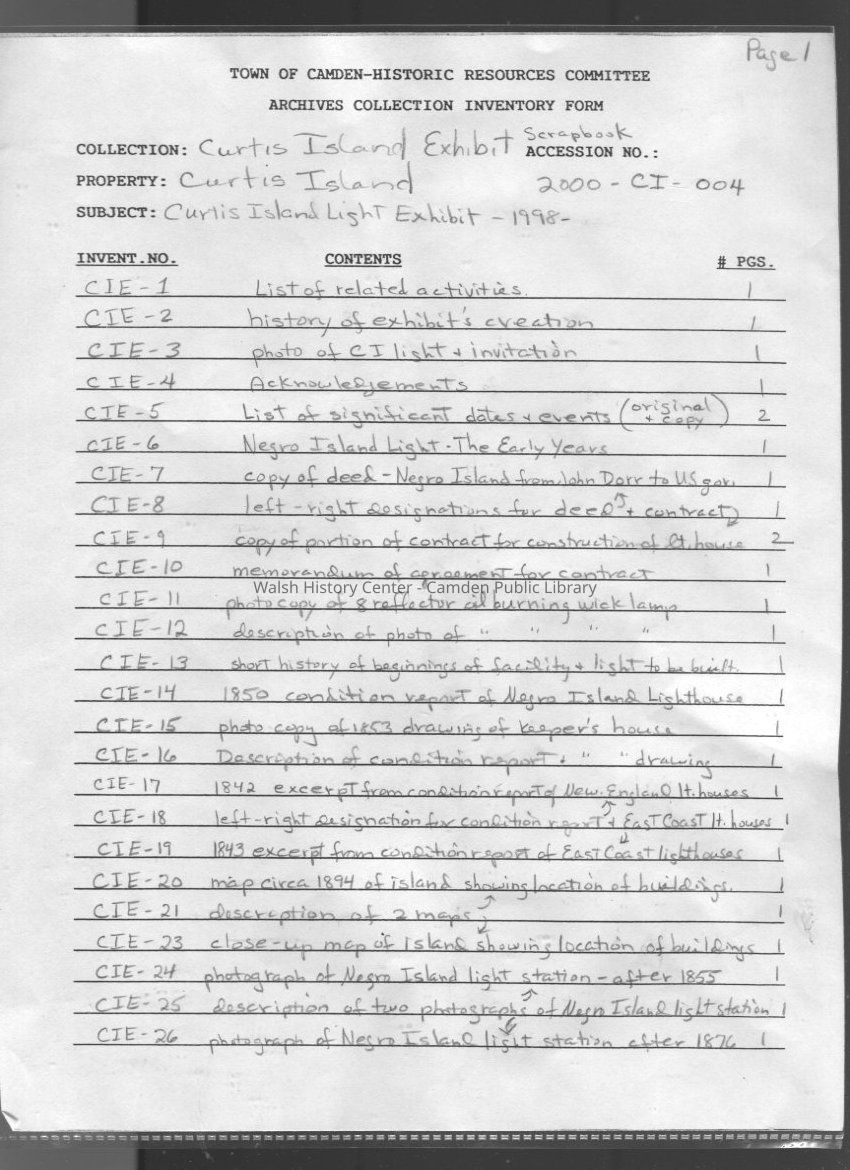 Page 1
TOWN OF CAMDEN-HISTORIC RESOURCES COMMITTEE
ARCHIVES COLLECTION INVENTORY FORM
COLLECTION: Curtis Island Exhibit Scrapbook
ACCESSION NO.:
PROPERTY: Curtis Island 2000-CI-004
SUBJECT: Curtis Island Light Exhibit - 1998-
INVENT.NO. CONTENTS # PGS.
CIE-1 List of related activities. 1
CIE-2 history of exhibit's creation 1
CIE-3 photo of CI light + invitation 1
CIE-4 Acknowledgements 1
CIE-5 List of significant dates + events (original + copy) 2
CIE-6 Negro Island Light - The Early Years 1
CIE-7 copy of deed - Negro Island from John Dorr to US gov. 1
CIE-8 left-right designations for deed + contract 1
CIE-9 copy of portion of contract for construction of lt. house 2
CIE-10 memorandum of agreement for contract 1
Walsh History Center - Camden Public Library
CIE-11 photocopy of 8 reflector oil burning wick lamp 1
CIE-12 description of photo of " " " " 1
CIE-13 short history of beginnings of facility + light to be built. 1
CIE-14 1850 condition report of Negro Island Lighthouse 1
CIE-15 photo copy of 1853 drawing of keeper's house 1
CIE-16 Description of condition report + " " drawing 1
CIE-17 1842 excerpt from condition report of New England lt. houses 1
CIE-18 left-right designation for condition report + East Coast lt. houses 1
CIE-19 1843 excerpt from condition report of East Coast lighthouses 1
CIE-20 map circa 1894 of island showing location of buildings. 1
CIE-21 description of 2 maps 1
CIE-23 close-up map of island showing location of buildings 1
CIE-24 photograph of Negro Island light station - after 1855 1
CIE-25 description of two photographs of Negro Island light station 1
CIE-26 photograph of Negro Island light station after 1876 1